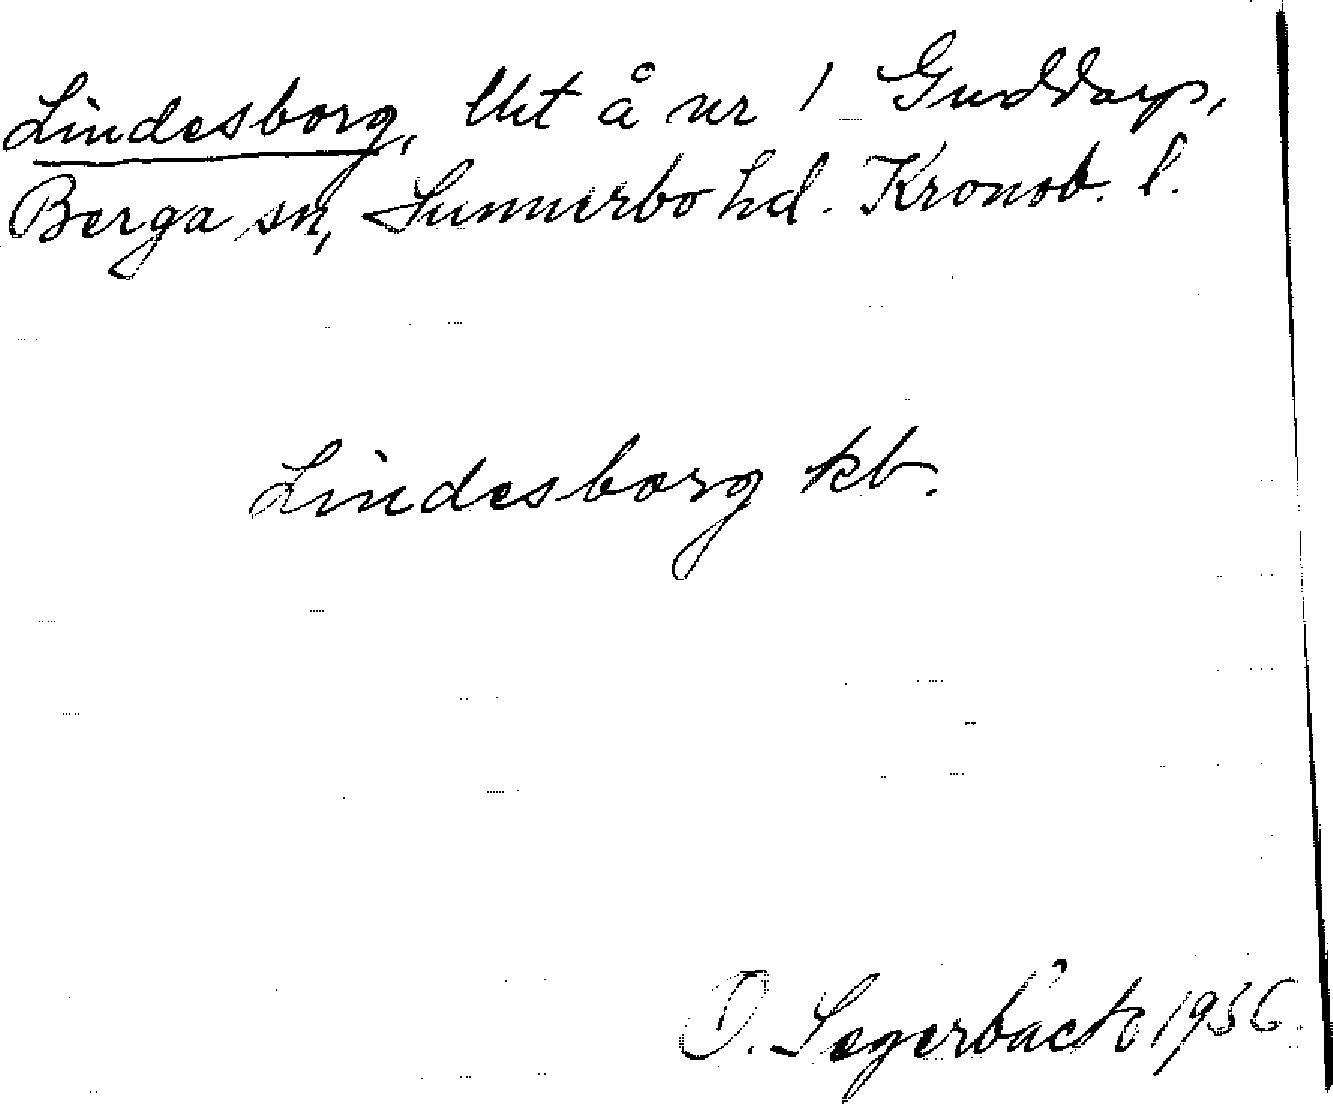 Lindesborg, Utt å nr 1 Guddarp,
Berga sn, Sunnerbo hd. Kronob. l.
Lindesborg kb.
O. Segerbäck 1936